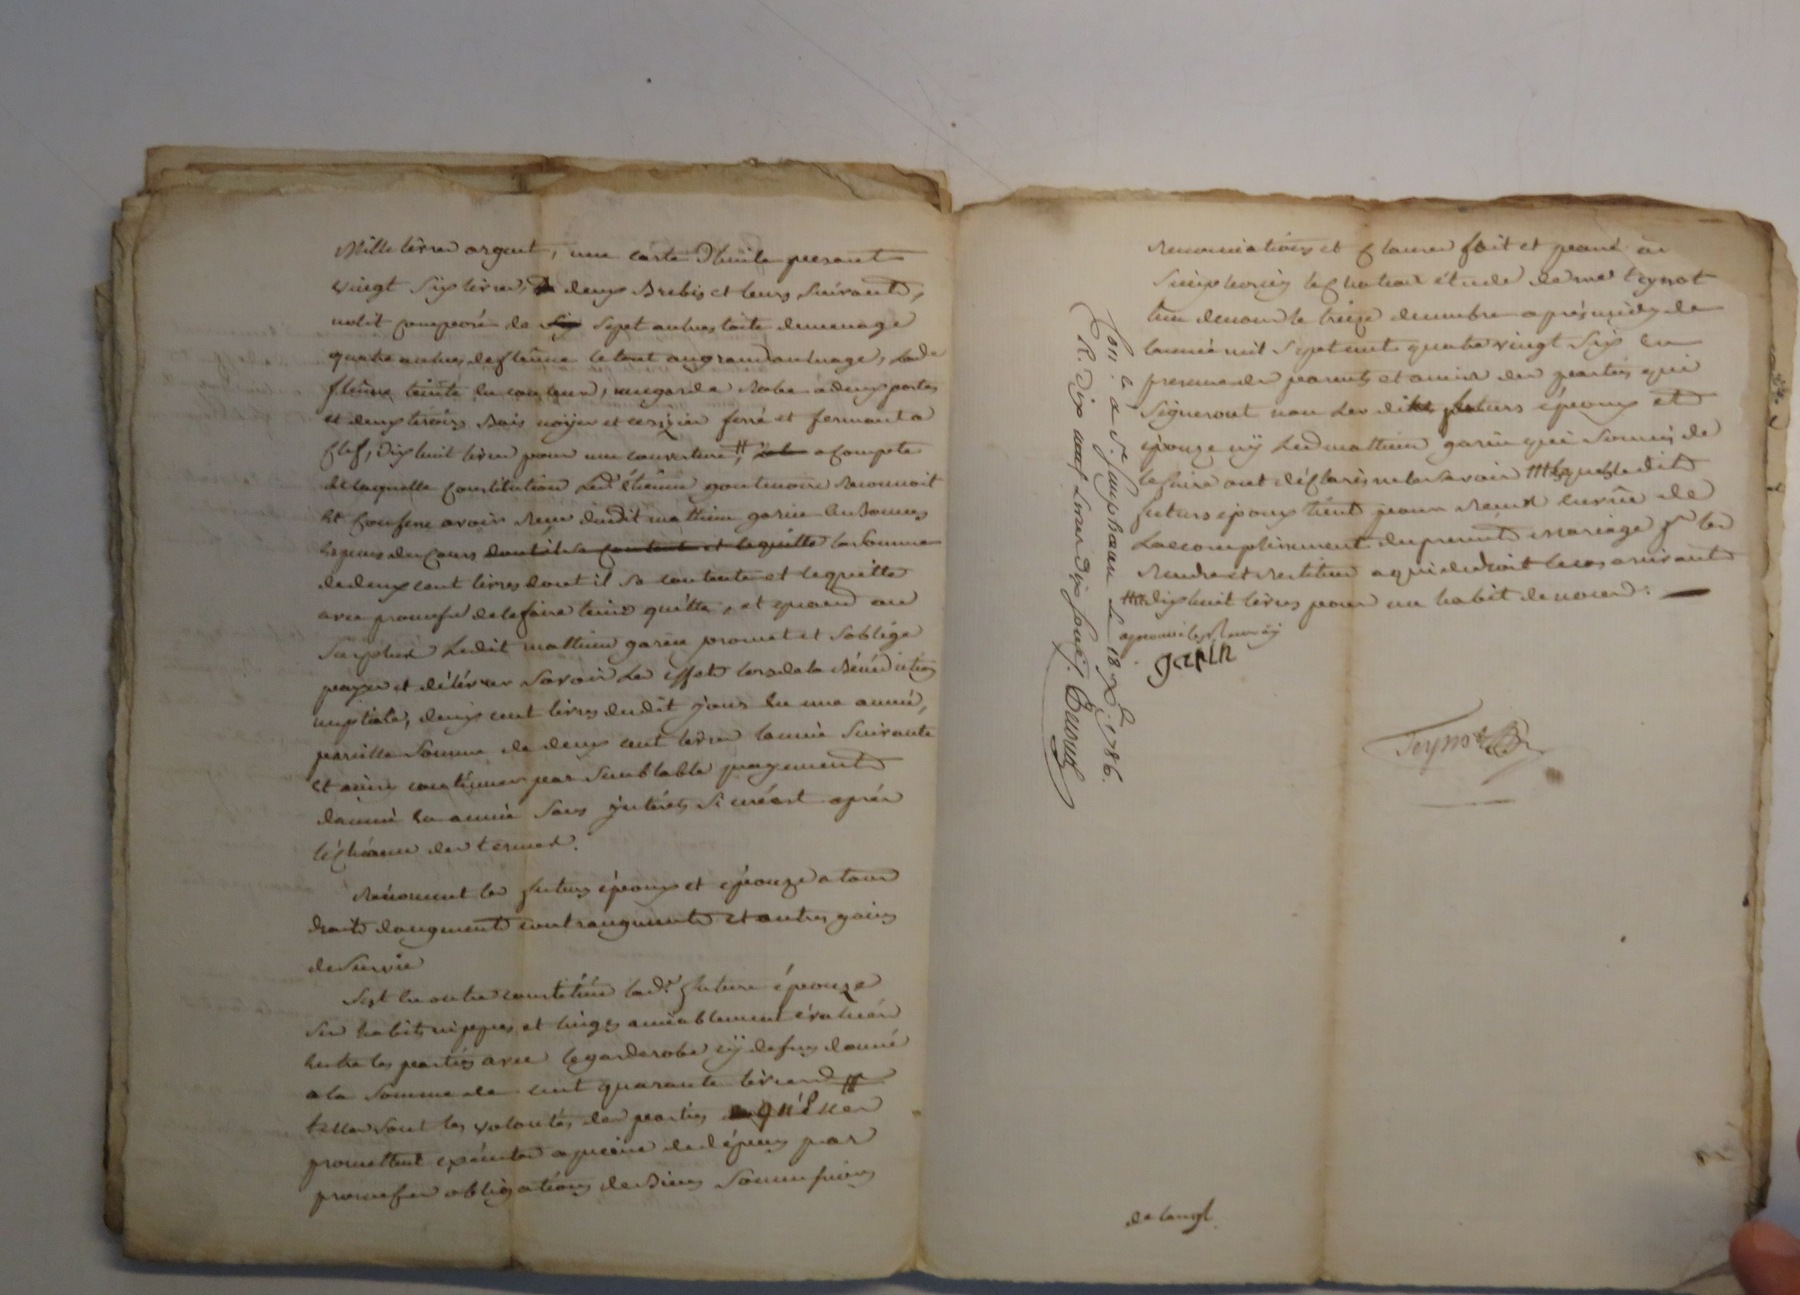 Mille livres argent, une carte d'huile pesant
vingt six livres, deux Brebis et leurs suivants,
un lit composé de six sept aulnes toile de menage
quatre aulnes de fleüne le tout au grand aulnage, lad.e
fleüne teinte en couleur, une garde Robe a deux portes
et deux tiroirs Bois noÿer et cerizier ferré et fermant a
clef, dix huit livres pour une couverture # a compte
de laquelle constitution led. étienne reconnoit
et confesse avoir reçu dudit mathieu garin en Bonnes
Especes du cours dont il se contente et le quitte la somme
de deux cent livres dont il se contente et le quitte
avec promesse de le faire tenir quitte, et quand au
surplus Ledit mathieu garin promet et s'oblige
payer et délivrer savoir les effets lors de la Bénédiction
nuptiale, deux cent livres dudit jour en une année,
pareille somme de deux cent livres l'année suivante
et ainsi continuer par semblable payement
d'année en année sans jnterets si ce n'est après
l'échéance des termes.
Renoncent les futurs époux et épouze a tous
droits d'augment contraugment et autres gains
de survie
s'est en outre constituée lad.e future épouze
ses habits nippes et linges amiablement évalués
Entre les parties avec le garderobe cÿ dessus donné
a la somme de cent quarante livres #
telles sont les volontés des parties qu'elles
promettent exécuter a peine de dépens par
promesses obligations de Biens soumissions
renonciations et clauses fait et passé a
le chateau étude de me teynot
l'un de nous le treize decembre après midy de
l'année mil sept cent quatre vingt six en
presence des parents et amis des parties qui
signeront non les dits futurs époux et
épouze nÿ led mathieu garin qui sommés de
le faire ont déclaré ne le savoir ledit
futur époux tient pour reçu en vüe de
L'accomplissement du present mariage pr les
rendre et restituer a qui de droit le cas arrivant
dix huit livres pour un habit de noces:
approuvé les renvoÿ
garin
Teynot
Con. é a St. Simphorien le 18 Xbre 1786.
R. Dix neuf Livres dix sous.